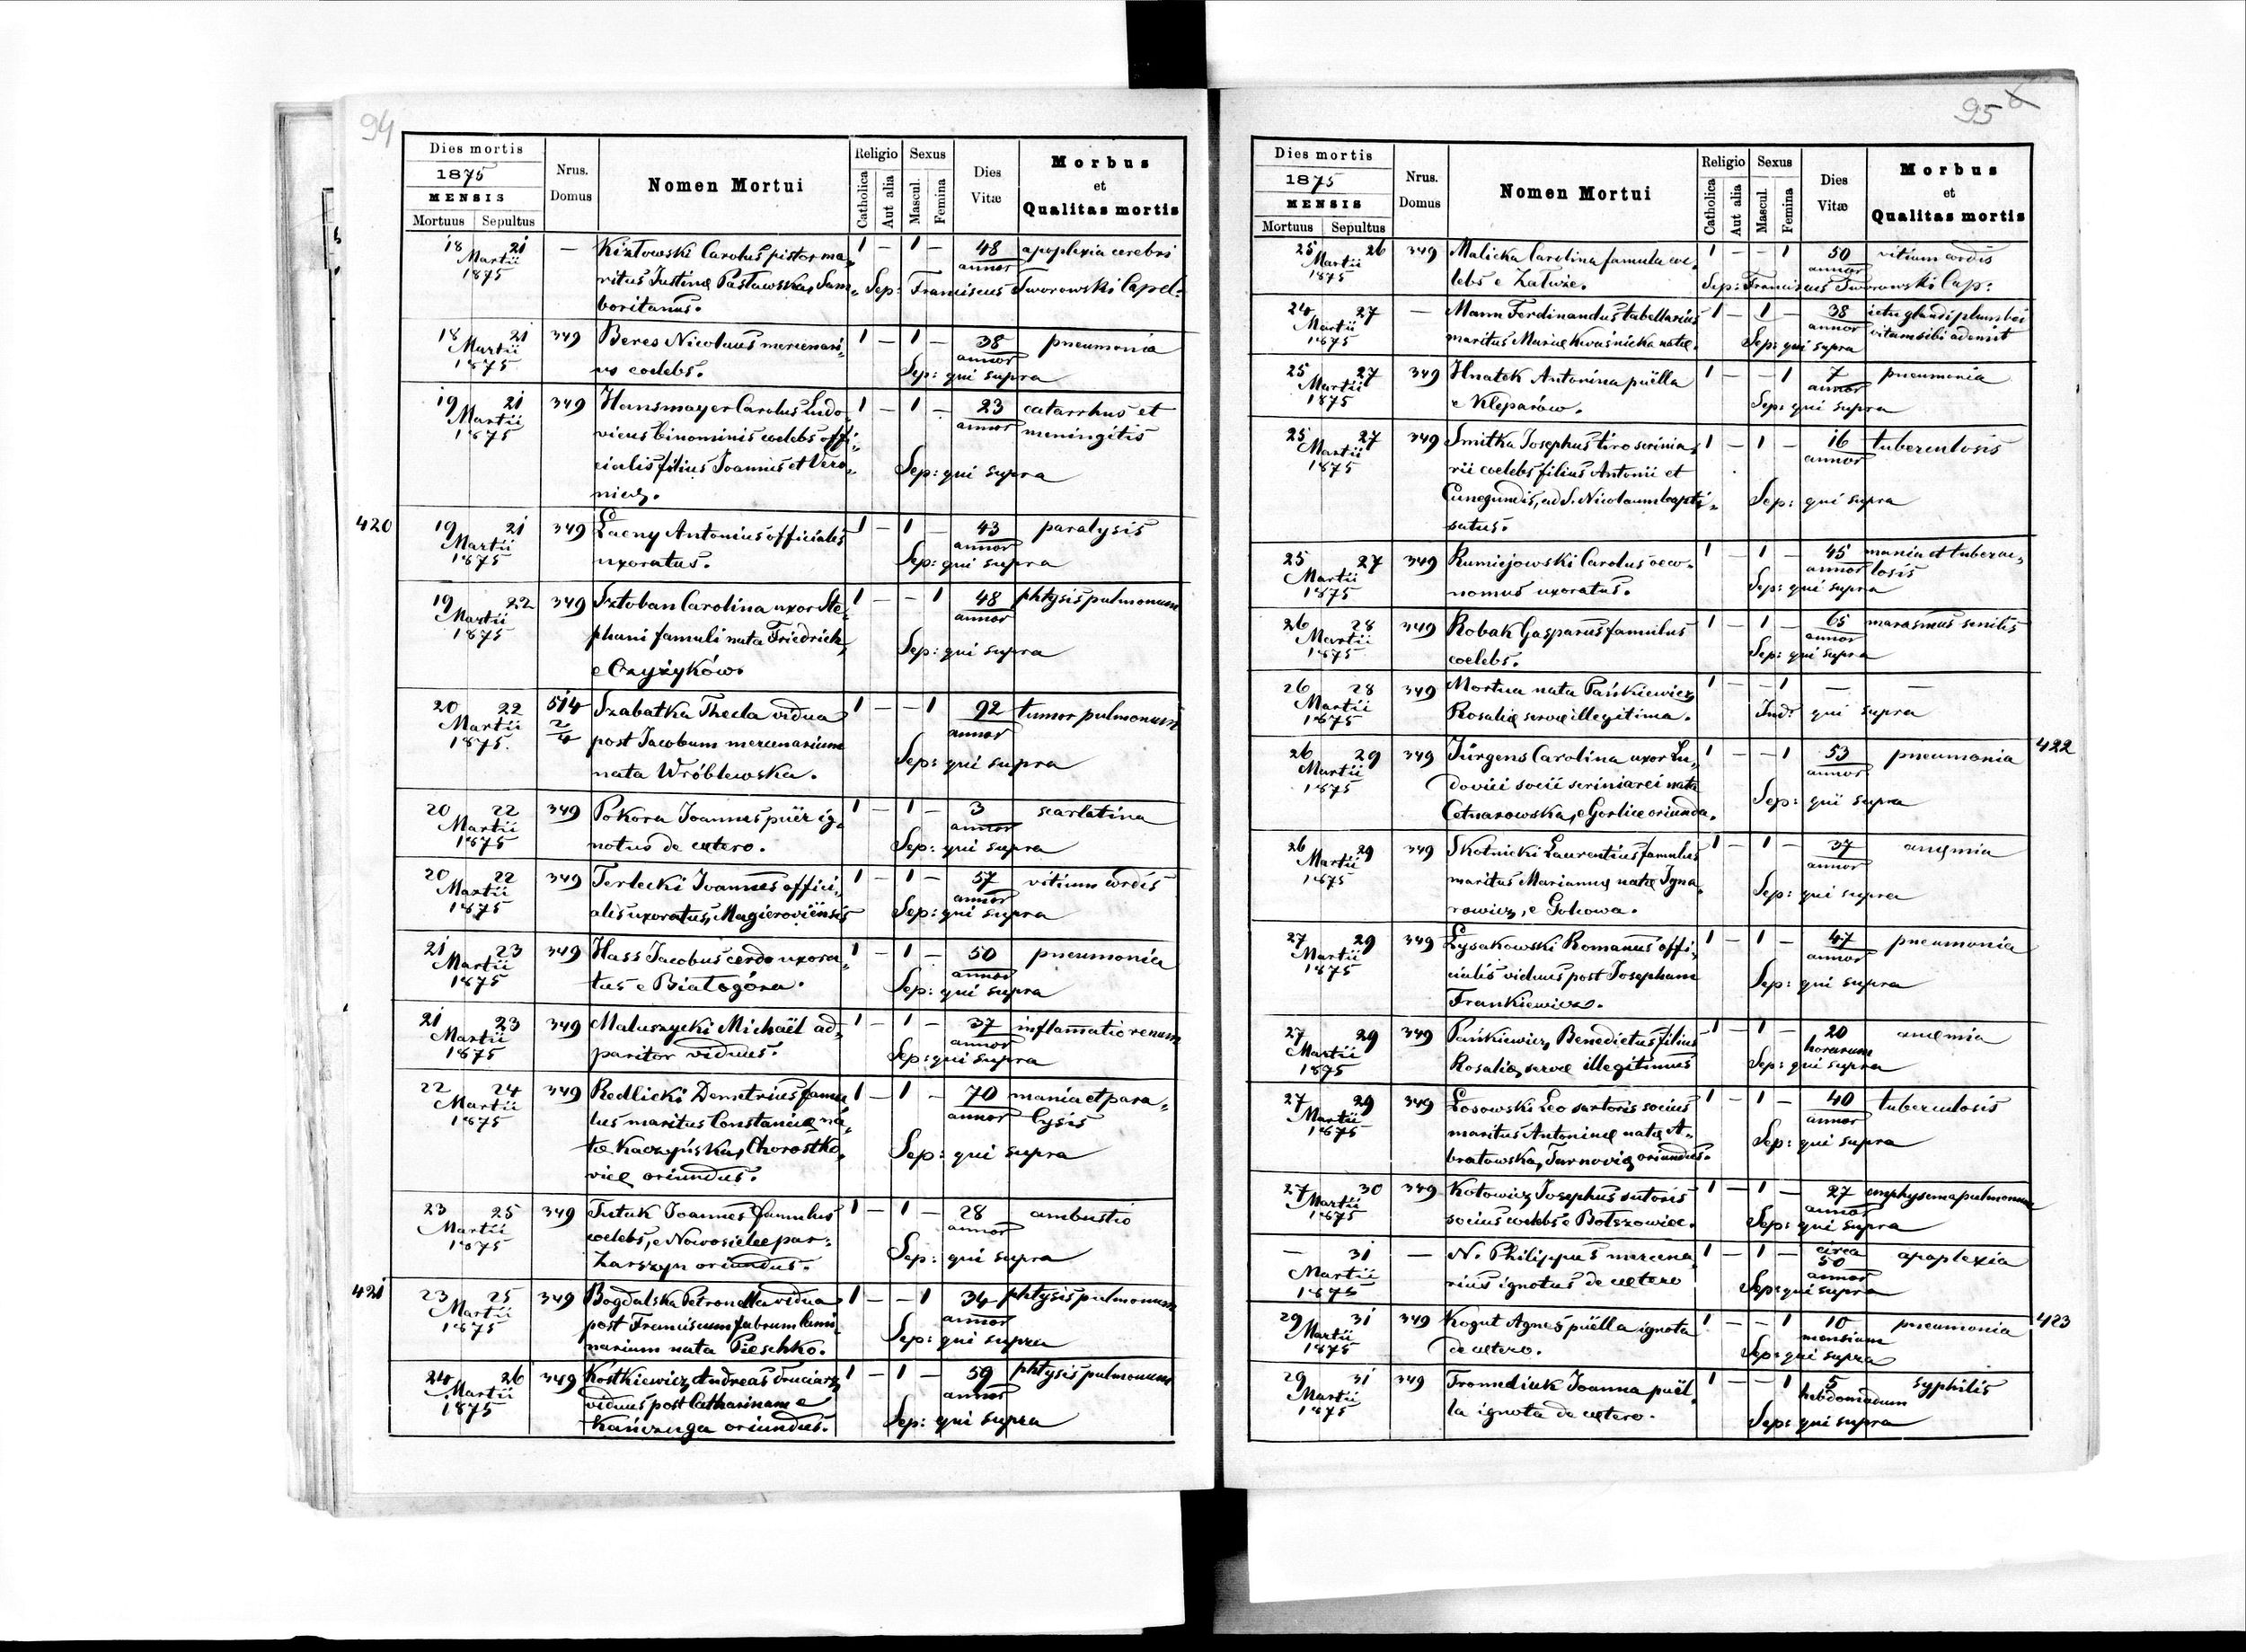 94
Dies mortis
1875
MENSIS
Mortuus Sepultus
Nrus. Domus
Nomen Mortui
Religio
Catholica Aut alia
Sexus
Mascul. Femina
Dies Vitæ
Morbus
et
Qualitas mortis
18 21 — Kiztowski Carolus pistor ma„ 1 — 1 — 48 apoplexia cerebri
Martii annor
1875 ritus Justinę Pasławska, Sam„ Sep: Franciscus Tworowski Capel:
boritanus.
18 21 349 Beres Nicolaus mercenari„ 1 — 1 — 38 pneumonia
Martii annor
1875 us coelebs. Sep: qui supra
19 21 349 Hansmayer Carolus Ludo„ 1 — 1 — 23 catarrhus et
Martii annor
1875 vicus binominis coelebs offi„ meningitis
cialis filius Joannis et Vero„ Sep: qui supra
nicę.
420 19 21 349 Łacny Antonius officialis 1 — 1 — 43 paralysis
Martii annor
1875 uxoratus. Sep: qui supra
19 22 349 Sztoban Carolina uxor Ste„ 1 — — 1 48 phtysis pulmonum
Martii annor
1875 phani famuli nata Friedrich,
e Czyżyków. Sep: qui supra
20 22 514 2/4 Szabatka Thecla vidua 1 — — 1 92 tumor pulmonum
Martii annor
1875. post Jacobum mercenarium
nata Wróblewska. Sep: qui supra
20 22 349 Pokora Joannes püer ig„ 1 — 1 — 3 scarlatina
Martii annor
1875 notus de cætero. Sep: qui supra
20 22 349 Terlecki Joannes offici„ 1 — 1 — 57 vitium cordis
Martii annor
1875 alis uxoratus, Magieroviënsis Sep: qui supra
21 23 349 Hass Jacobus cerdo uxora„ 1 — 1 — 50 pneumonia
Martii annor
1875 tus e Białogóra. Sep: qui supra
21 23 349 Maluszycki Michaël ad„ 1 — 1 — 37 inflamatio renum
Martii annor
1875 paritor viduus. Sep: qui supra
22 24 349 Redlicki Demetrius famu 1 — 1 — 70 mania et para„
Martii annor
1875 lus maritus Constancię na„ lysis
tæ Kaczyńska, Chorostko„ Sep: qui supra
vicę oriundus.
23 25 349 Tutuk Joannes famulus 1 — 1 — 28 ambustio
Martii annor
1875 coelebs, e Nowosielce par:
Zarszyn oriundus. Sep: qui supra
421 23 25 349 Bogdalska Petronella vidua 1 — — 1 34 phtysis pulmonum
Martii annor
1875 post Franciscum fabrum lami„
narium nata Pieschko. Sep: qui supra
24 26 349 Kostkiewicz Andreas druciarz 1 — 1 — 59 phtysis pulmonum
Martii annor
1875 viduus post Catharinam e
Kańczuga oriundus. Sep: qui supra
95
Dies mortis
1875
MENSIS
Mortuus Sepultus
Nrus. Domus
Nomen Mortui
Religio
Catholica Aut alia
Sexus
Mascul. Femina
Dies Vitæ
Morbus
et
Qualitas mortis
25 26 349 Malicka Carolina famula coe„ 1 — — 1 50 vitium cordis
Martii annor
1875 lebs e Załuże. Sep: Franciscus Tworowski Cap:
24 27 — Mann Ferdinandus tabellarius 1 — 1 — 38 ictu glandi plumbei
Martii annor vitam sibi ademit
1875 maritus Mariæ Kwaśnicka natæ. Sep: qui supra
25 27 349 Hnatek Antonina püella 1 — — 1 7 pneumonia
Martii annor
1875 e Kleparów. Sep: qui supra
25 27 349 Smitka Josephus tiro scrinia„ 1 — 1 — 16 tuberculosis
Martii annor
1875 rii coelebs filius Antonii et
Cunegundis, ad S. Nicolaum bapti„ Sep: qui supra
satus.
25 27 349 Rumiejowski Carolus oeco„ 1 — 1 — 45 mania et tubercu„
Martii annor losis
1875 nomus uxoratus. Sep: qui supra
26 28 349 Robak Gasparus famulus 1 — 1 — 65 marasmus senilis
Martii annor
1875 coelebs. Sep: qui supra
26 28 349 Mortua nata Pańkiewicz 1 — — 1 — —
Martii
1875 Rosalię servę illegitima. Ind: qui supra
26 29 349 Jürgens Carolina uxor Lu„ 1 — — 1 53 pneumonia 422
Martii annor
1875 dovici socii scriniarei nata
Cetnarowska, e Gorlice oriunda. Sep: qui supra
26 29 349 Skotnicki Laurentius famulus 1 — 1 — 37 anęmia
Martii annor
1875 maritus Mariannę natę Igna„
rowicz, e Gołkowa. Sep: qui supra
27 29 349 Łysakowski Romanus offi„ 1 — 1 — 47 pneumonia
Martii annor
1875 cialis viduus post Josepham
Frankiewicz. Sep: qui supra
27 29 349 Pańkiewicz Benedictus filius 1 — 1 — 20 anęmia
Martii horarum
1875 Rosalię, servæ illegitimus Sep: qui supra
27 29 349 Łosowski Leo sartoris socius 1 — 1 — 40 tuberculosis
Martii annor
1875 maritus Antoninę natę A„
bratowska, Tarnovię oriundus. Sep: qui supra
27 30 349 Kotowicz Josephus sutoris 1 — 1 — 27 emphysema pulmonum
Martii annor
1875 socius coelebs e Bołszowiec. Sep: qui supra
— 31 — N. Philippus mercena„ 1 — 1 — circa 50 apoplexia
Martii annor
1875 rius ignotus de cætero Sep: qui supra
29 31 349 Kogut Agnes püella ignota 1 — — 1 10 pneumonia 423
Martii mensium
1875 de cætero. Sep: qui supra
29 31 349 Fromediuk Joanna püel„ 1 — — 1 5 syphilis
Martii hebdomadum
1875 la ignota de cætero. Sep: qui supra